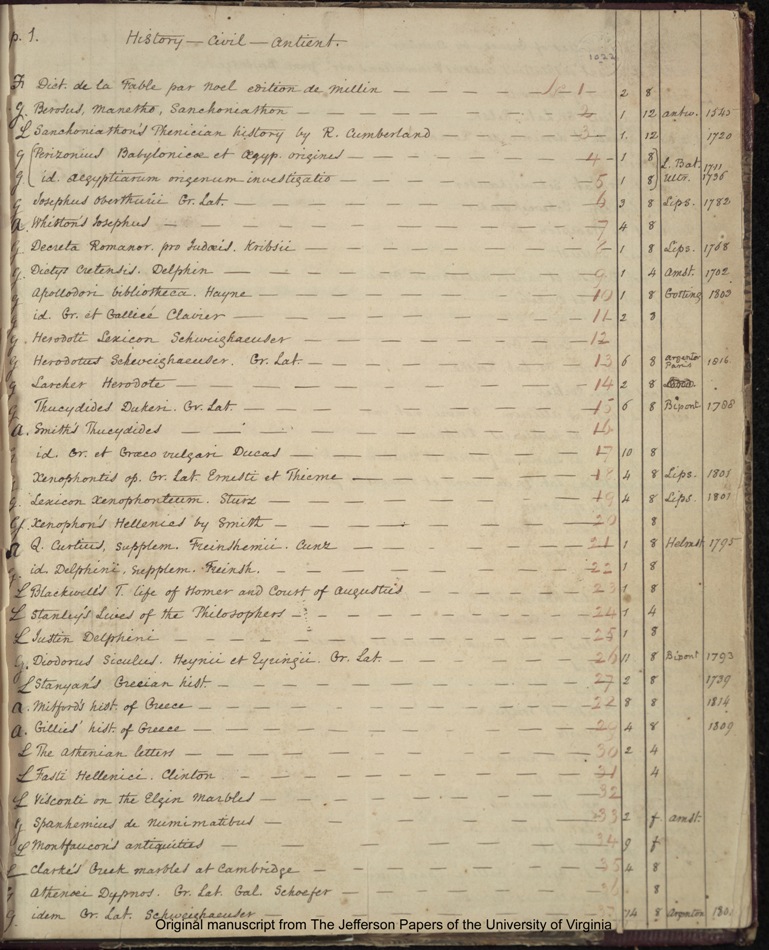 p. 1. History — Civil — Antient.
1022
F Dict. de la Fable par Noel edition de Millin — 1 2 8
g. Berosus, Manetho, Sanchoniathon — 2 1 12 Antw. 1545
L Sanchoniathon's Phenician history by R. Cumberland — 3 1. 12 1720
g Perizonius Babylonicæ et Ægyp. origines — 4 1 8 L. Bat. 1711
g id. Ægyptiarum originum investigatio — 5 1 8 Ultr. 1736
g Josephus Oberthurii Gr. Lat. — 6 3 8 Lips. 1782
a. Whiston's Josephus — 7 4 8
g. Decreta Romanor. pro Judæis. Kribsii — 8 1 8 Lips. 1768
g. Dictys Cretensis. Delphin — 9 1 4 Amst. 1702
g Apollodori bibliotheca. Hayne — 10 1 8 Gotting 1803
g id. Gr. et Gallicé Clavier — 11 2 8
g. Herodoti Lexicon Schweighaeuser — 12
g Herodotus Schweighaeuser. Gr. Lat. — 13 6 8 Argento Paris 1816
g Larcher Herodote — 14 2 8
g Thucydides Dukeri. Gr. Lat. — 15 6 8 Bipont 1788
a. Smith's Thucydides — 16
id. Gr. et Græco vulgari Ducas — 17 10 8
Xenophontis op. Gr. Lat. Ernesti et Thieme — 18 4 8 Lips. 1801
g. Lexicon Xenophonteum. Sturz — 19 4 8 Lips. 1801
Xenophon's Hellenics by Smith — 20 8
a Q. Curtius, supplem. Freinshemii. Cunz — 21 1 8 Helmst 1795
id. Delphini, supplem. Freinsh. — 22 1 8
L Blackwell's T. life of Homer and Court of Augustus — 23 1 8
L Stanley's Lives of the Philosophers — 24 1 4
L Justin Delphini — 25 1 8
g. Diodorus Siculus. Heynii et Eyringii. Gr. Lat. — 26 11 8 Bipont 1793
L Stanyan's Grecian hist. — 27 2 8 1739
a. Mitford's hist. of Greece — 28 8 8 1814
a. Gillies' hist. of Greece — 29 4 8 1809
L The Athenian letters — 30 2 4
L Fasti Hellenici. Clinton — 31 4
L Visconti on the Elgin Marbles — 32
g Spanhemius de Numismatibus — 33 2 f Amst.
L Montfaucon's antiquities — 34 9 f
L Clarke's Greek marbles at Cambridge — 35 4 8
g Athenæi Dypnos. Gr. Lat. Gal. Schoefer — 36 8
g idem Gr. Lat. Schweighaeuser — 14 8 Argenton 1801
Original manuscript from The Jefferson Papers of the University of Virginia